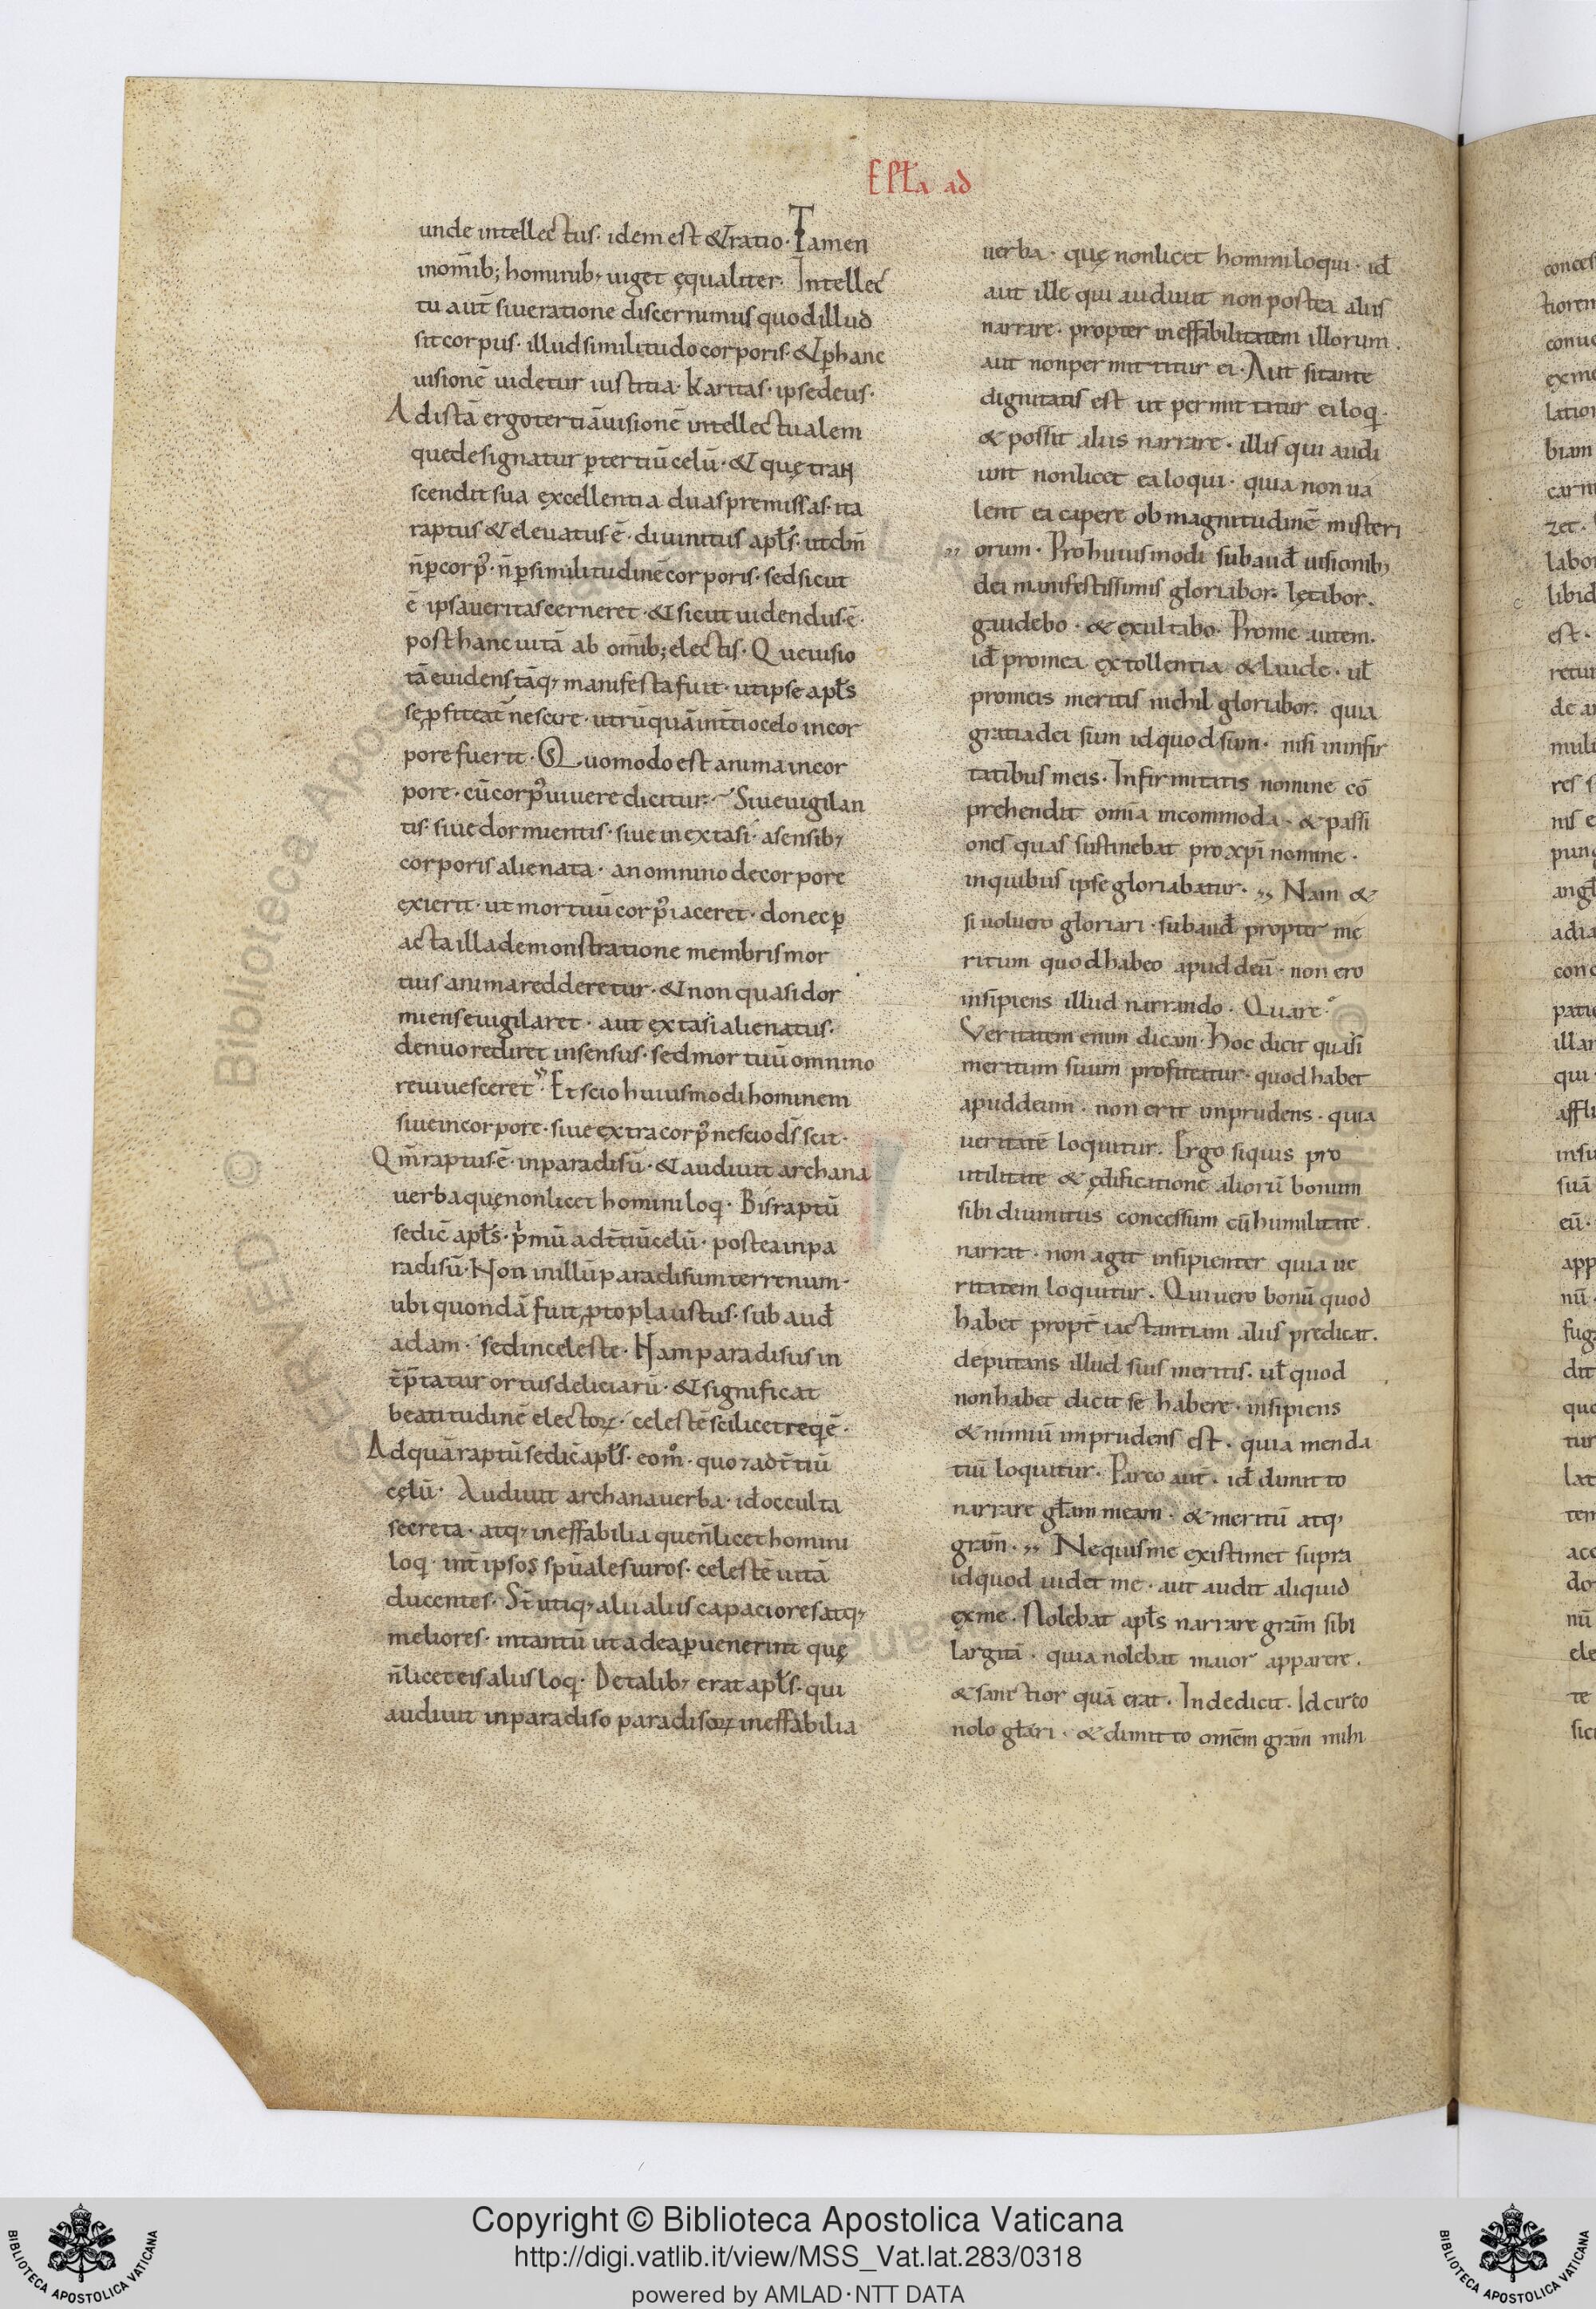 Epl̄a ad
unde intellectus · idem est & ratio · Tamen
in om̄ib; hominib; uiget ęqualiter · Intellec
tu aut̄ siue ratione discernimus quod illud
sit corpus · illud similitudo corporis · & ꝑ hanc
uisionē uidetur iustitia · karitas · ipse deus ·
Ad istā ergo tertiā uisionē intellectualem
que designatur ꝑ tertiū celū · & quę tran
scendit sua excellentia duas premissas · ita
raptus & eleuatus ē · diuinitus apl̄s · ut
n̄ ꝑ corpꝰ · n̄ ꝑ similitudinē corporis · sed sicut
ē ipsa ueritas cerneret · & sicut uidendus ē ·
post hanc uitā ab om̄ib; electis · Que uisio
tā euidens tāq; manifesta fuit · ut ipse apl̄s
se ꝓfiteat̄ nescire · utrū quā in t̄tio celo in cor
pore fuerit · Quomodo est anima in cor
pore · cū corpꝰ uiuere dicitur · Siue uigilan
tis · siue dormientis · siue in extasi · a sensib;
corporis alienata · an omnino de corpore
exierit · ut mortuū corpꝰ iaceret · donec ꝑ
acta illa demonstratione membris mor
tuis anima redderetur · & non quasi dor
miens euigilaret · aut extasi alienatus ·
denuo rediret in sensus · sed mortuū omnino
reuiuesceret · Et scio huiusmodi hominem
siue in corpore · siue extra corpꝰ nescio ds̄ scit ·
Qm̄ raptus ē · in paradisū · & audiuit archana
uerba quę non licet homini loqi · Bis raptū
se dic̄ apl̄s · pͥmū ad t̄tiū celū · postea in pa
radisū · Non in illū paradisum terrenum ·
ubi quondā fuit protoplaustus · subaud̄
adam · sed in celeste · Nam paradisus in
t̄p̄tatur ortus deliciarū · & significat
beatitudinē electoꝝ · celestē scilicet reqͥē ·
Ad quā raptū se dic̄ apl̄s · eoᵐ · quo & ad t̄tiū
cęlū · Audiuit archana uerba · id̄ occulta
secreta · atq; ineffabilia que n̄ licet homini
loqi · int̄ ipsos spūales uiros · celestē uitā
ducentes · St̄ utiq; alii aliis capaciores atq;
meliores · in tantū ut ad ea ꝑuenerint quę
n̄ licet eis aliis loqi · De talib; erat apl̄s · qui
audiuit in paradiso paradisoꝝ ineffabilia
uerba · quę non licet homini loqui · id̄
aut ille qui audiuit non postea aliis
narrare · propter ineffabilitatem illorum ·
aut non permittitur ei · Aut si tante
dignitatis est ut permittatur ei loqi ·
& possit aliis narrare · illis qui audi
unt non licet ea loqui · quia non ua
lent ea capere ob magnitudinē misteri
,, orum · Pro huiusmodi subaud̄ uisionib;
dei manifestissimis gloriabor · lętibor ·
gaudebo · & exultabo · Pro me autem ·
id̄ pro mea extollentia & laude · ul̄
pro meis meritis nichil gloriabor · quia
gratia dei sum id quod sum · nisi in infir
tatibus meis · Infirmitatis nomine cō
prehendit om̄ia incommoda · & passi
ones quas sustinebat pro xp̄i nomine ·
in quibus ipse gloriabatur · ,, Nam &
si uoluero gloriari · subaud̄ propter me
ritum quod habeo apud deū · non ero
insipiens illud narrando · Quare
Veritatem enim dicam · Hoc dicit quasi
meritum suum profiteatur · quod habet
apud deum · non erit imprudens · quia
ueritatē loquitur · Ergo siquis pro
utilitate & ędificatione aliorū bonum
sibi diuinitus concessum cū humilitate ·
narrat · non agit insipienter quia ue
ritatem loquitur · Qui uero bonū quod
habet propt̄ iactantiam aliis predicat ·
deputans illud suis meritis · ul̄ quod
non habet dicit se habere · insipiens
& nimiū imprudens est · quia menda
tiū loquitur · Parco aut̄ · id̄ dimitto
narrare gl̄am meam · & meritū atq;
gram̄ · ,, Nequis me existimet supra
id quod uidet me · aut audit aliquid
ex me · Nolebat apl̄s narrare gram̄ sibi
largitā · quia nolebat maior apparere ·
& sanctior quā erat · Inde dicit · Idcirco
nolo gl̄ari · & dimitto omēm gram̄ mihi
Copyright © Biblioteca Apostolica Vaticana
http://digi.vatlib.it/view/MSS_Vat.lat.283/0318
powered by AMLAD·NTT DATA
BIBLIOTECA APOSTOLICA VATICANA
BIBLIOTECA APOSTOLICA VATICANA